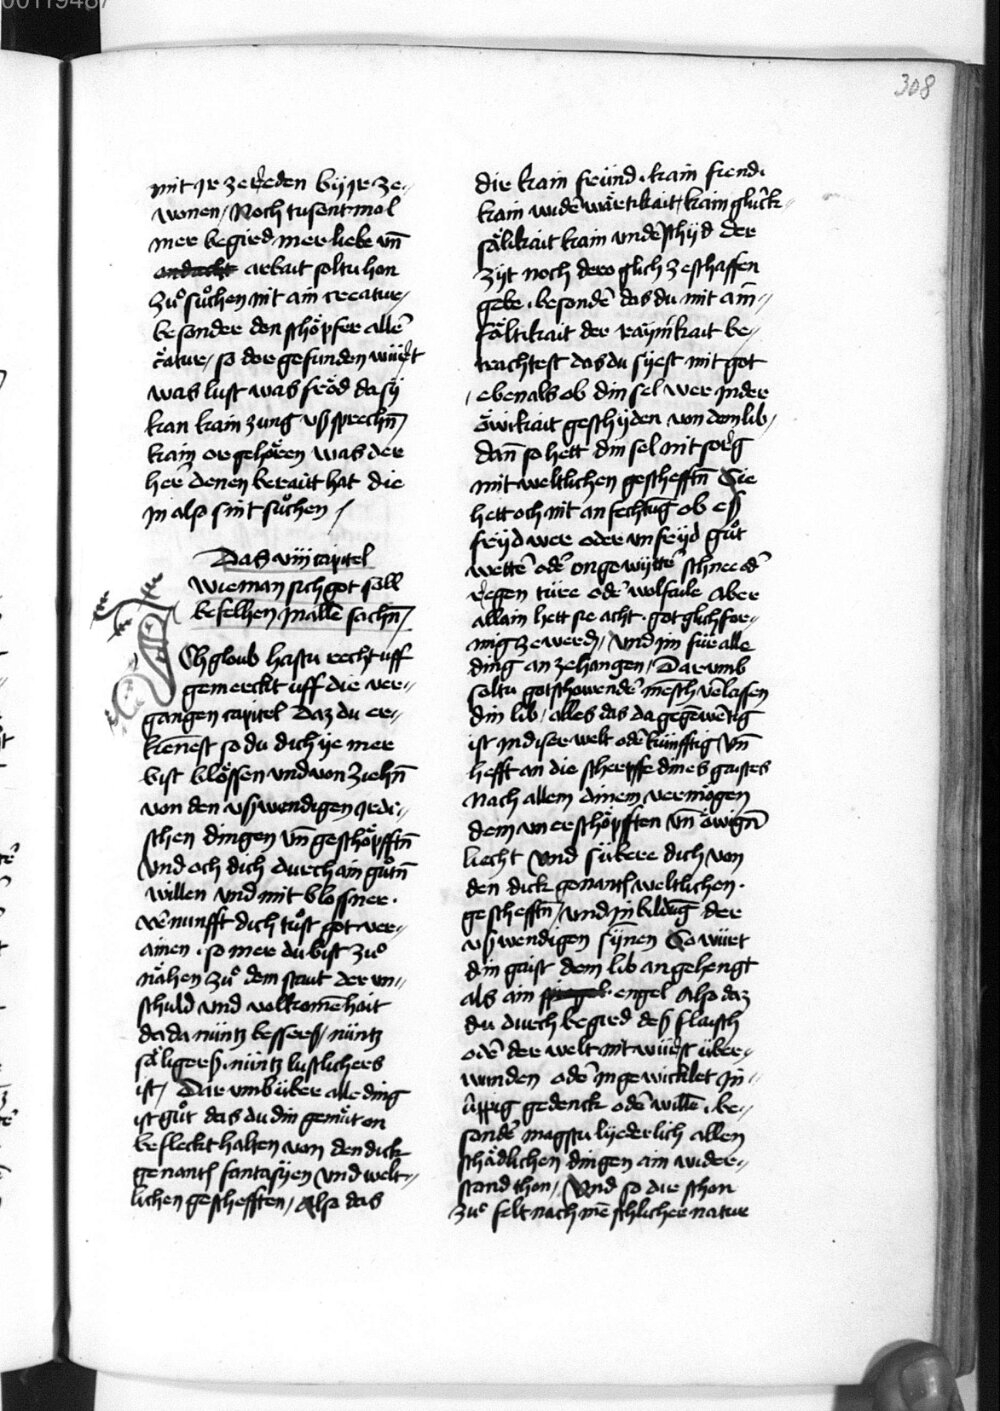 00119487
308
mit Jr ze reden by Jr ze-
wonen / Noch tusentmol
mer begird mer liebe vn̄
andacht arbait soltu hon
zuͦ suͦchen nit ain creatur /
besonder den schöpfer alle͂
c͂atur / so der gefunden würt
was lust was fröd da sÿ
kan kain zung vß sprechn̄
kain or gehören was der
her denen berait hat die
jn also sint suͦchen /
Das viij capitel
wie man sich got soll
befelhen jn alle͂ sachn̄
Ich gloub hastu recht uff
gemerckt uff die ver-
gangen capitel Daz du er-
kiēnest so du dich ÿe mer
bist blössen vnd von ziehn̄
von den vßwendigen jrdi-
schen dingen vn̄ geschöpfftn̄
vnd och dich durch ain guͦtn̄
willen vnd mit blosser
v͂nunfft dich tuͦst got ver-
ainen . so mer du bist zuͦ
nähen zuͦ dem stāt der vn-
schuld vnd volkomēhait
da da nüntz bessers / nüntz
säligers . nüntz lustlichers
ist / Dar vmb über alle ding
ist guͦt das du din gemüt on
befleckt halten von den dick
genantē fantasÿen vnd welt-
lichen geschefften / Also das
die kain fründ . kain fiend .
kain wide͂ wärtikait / kain glück-
sälikait kain vnde͂schÿd der
zÿt noch dero glich zeschaffen
gebe . besonde͂ das du mit ain-
fältikait der raÿnikait be-
trachtest das du sÿest mit got
ebenals ob din sel wer jn der
öwikait geschÿden von dem lib /
dan̄ so hett din sel nit sorg
mit weltlichen gescheftn̄ Sie
hett och nit an fechtung ob eß
frÿd wer oder vnfrÿd guͦt
wette͂ ode͂ ongewitte͂ schnee od͂
regen türe ode͂ wolfaile Aber
allain hett sie acht . got glichfor-
mig zewerdn̄ / vnd jm für alle
ding an zehangen / Dar vmb
soltu got schowende͂ mēsch v͂lasen
din lib / alles das da gegēwertig
ist jn diser welt ode͂ künfftig vn̄
hefft an die scherpffe dines gaistes
nach allem dinem vermögen
dem vnerschöpfften vn̄ öwign̄
liecht vnd sübere dich von
den dick genantē weltlichen .
gescheftn̄ / vnd jnbildūg der
vßwendigen sÿnen So würt
din gaist dem lib angehengt
als ain spiegel . engel Also daz
du durch begird deß flaisch
ode͂ der welt nit würst über-
wunden ode͂ jn gewicklet jn /
üppig gedenck ode͂ wille͂ . be-
sonde͂ magstu lÿederlich allen
schädlichen dingen ain wider-
stand thon / Vnd so die schon
zuͦ felt nach mēschlicher natur